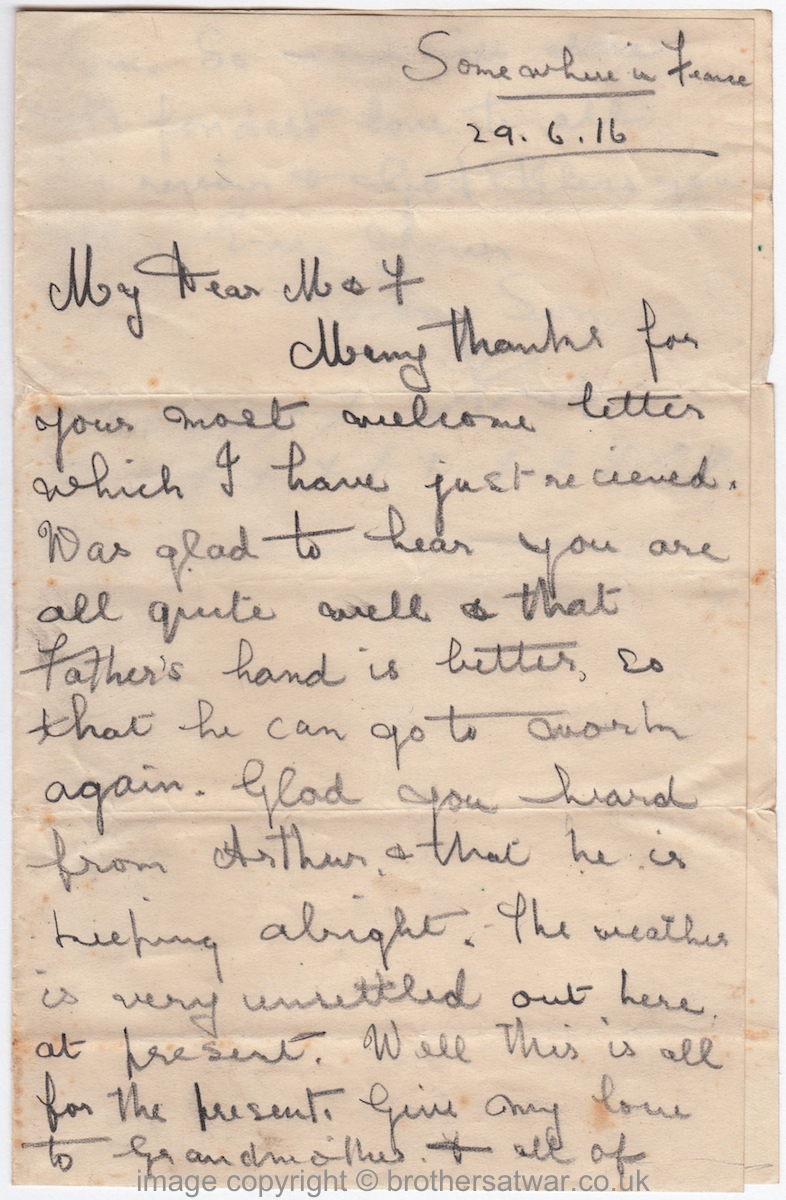 Somewhere in France
29.6.16
My Dear M & F
Many thanks for
your most welcome letter
which I have just recieved.
Was glad to hear you are
all quite well & that
Father's hand is better, so
that he can go to work
again. Glad you heard
from Arthur, & that he is
keeping alright. The weather
is very unsettled out here,
at present. Well this is all
for the present. Give my love
to Grandmother. & all of
image copyright © brothersatwar.co.uk